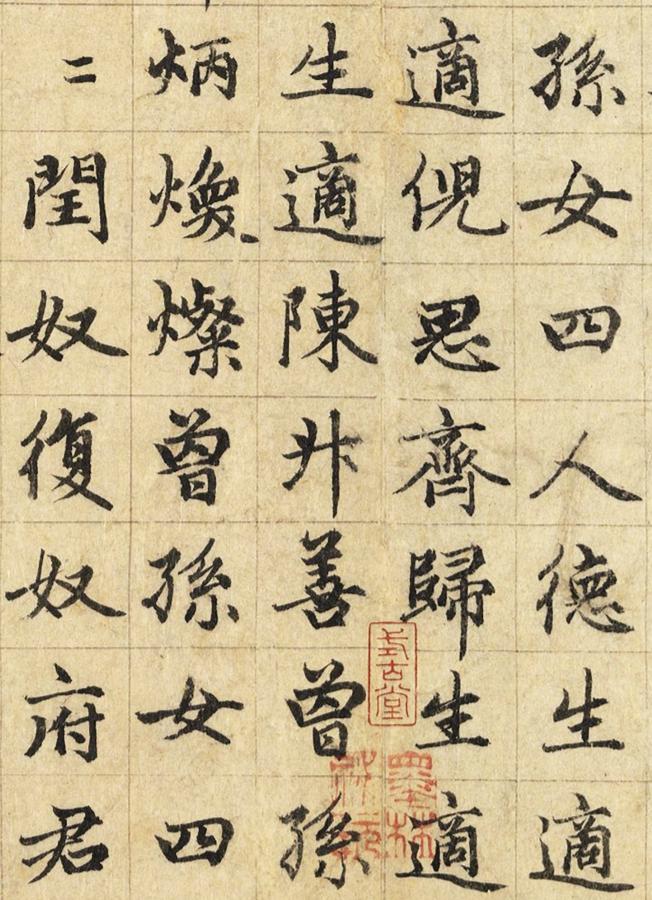 孫女四人德生適
適倪思齊歸生適
生適陳升善曾孫
炳煥燦曾孫女四
二閏奴復奴府君
式古堂
墨林
祕玩